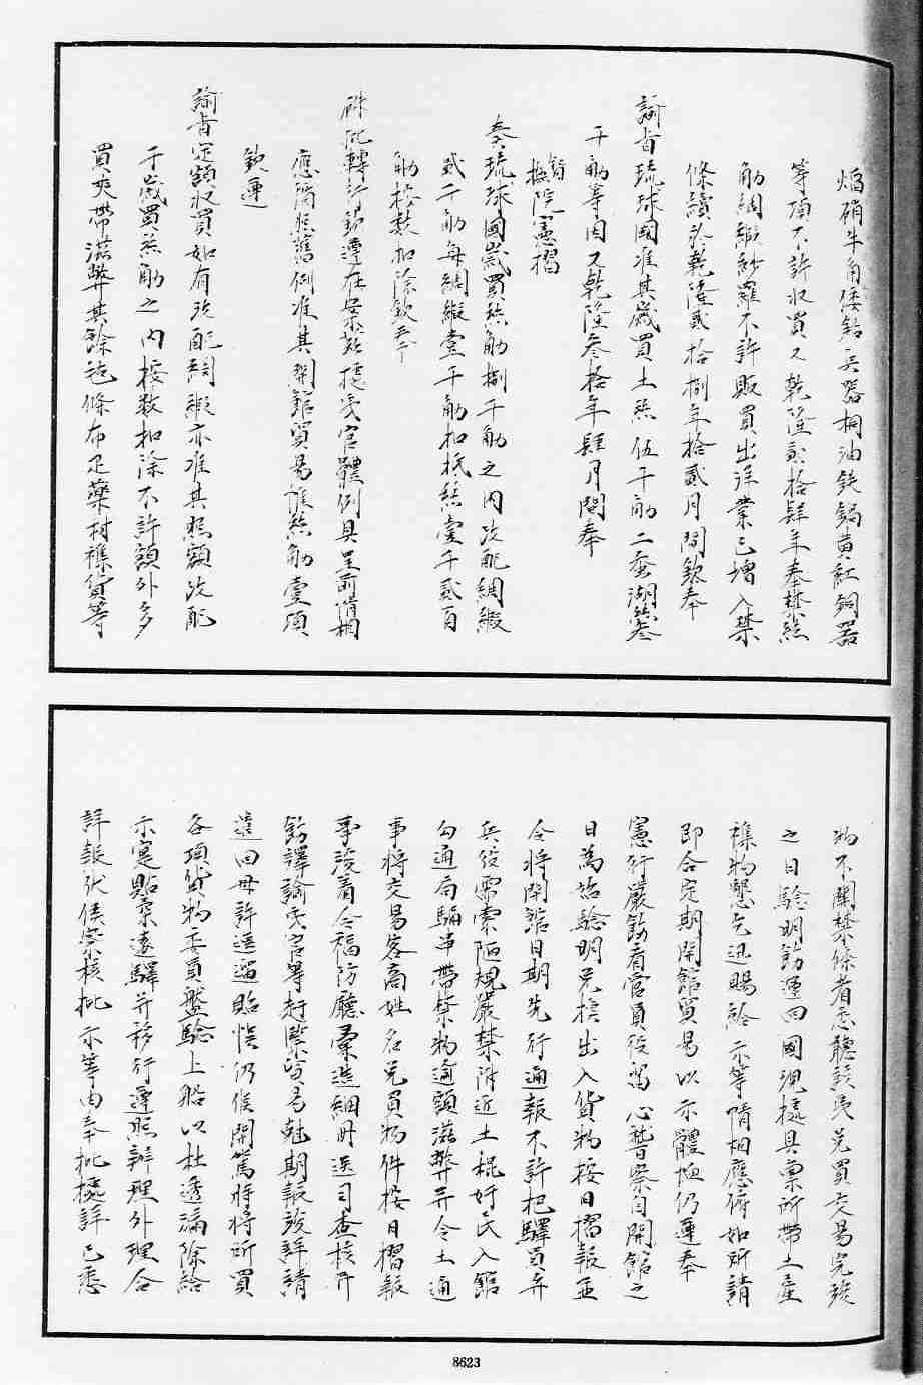 焰硝牛角倭鉛兵器桐油鉄鍋黄紅銅器
等項不許收買又乾隆貳拾肆年奉禁絲
觔綢緞紗羅不許販買出洋業已增入禁
條續於乾隆貳拾捌年拾貳月間欽奉
諭旨琉球國准其歲買土絲伍千觔二蚕湖絲叁
千觔等因又乾隆叁拾年肆月間奉
督撫院憲摺
奏琉球國歲買絲觔捌千觔之內改配綢緞
貳千觔每綢緞壹千觔扣抵絲壹千貳百
觔按数扣除欽奉
硃批轉行飭遵在案茲據夷官體例具呈前情相
應循照舊例准其開館貿易惟絲觔壹項
欽遵
諭旨定額收買如有改配綢緞亦准其照額改配
于歲買絲觔之內按数扣除不許額外多
買夾帶滋弊其餘毡條布疋藥材襍貨等
物不關禁條者悉聽該夷兌買交易完竣
之日驗明飭運回國現據具稟所帶土產
襍物懇乞迅賜給示等情相應俯如所請
即合定期開館貿易以示體恤仍速奉
憲行嚴飭看管員役留心聱察自開館之
日為始驗明兌換出入貨物按日摺報並
令將開館日期先行通報不許把驛員弁
兵役需索陋規嚴禁附近土棍奸民入館
勾通局騙串帶禁物逾額滋弊并令土通
事將交易客商姓名兌買物件按日摺報
事竣着令福防廳彙造細册送司查核并
飭譯諭夷官等赶緊貿易尅期報竣詳請
遣回毋許逗遛貽悞仍俟開篤將將所買
各項貨物委員盤驗上船以杜透漏除給
示寔貼柔遠驛并移行遵照辦理外理合
詳報伏候察核批示等由奉批據詳已悉
8623